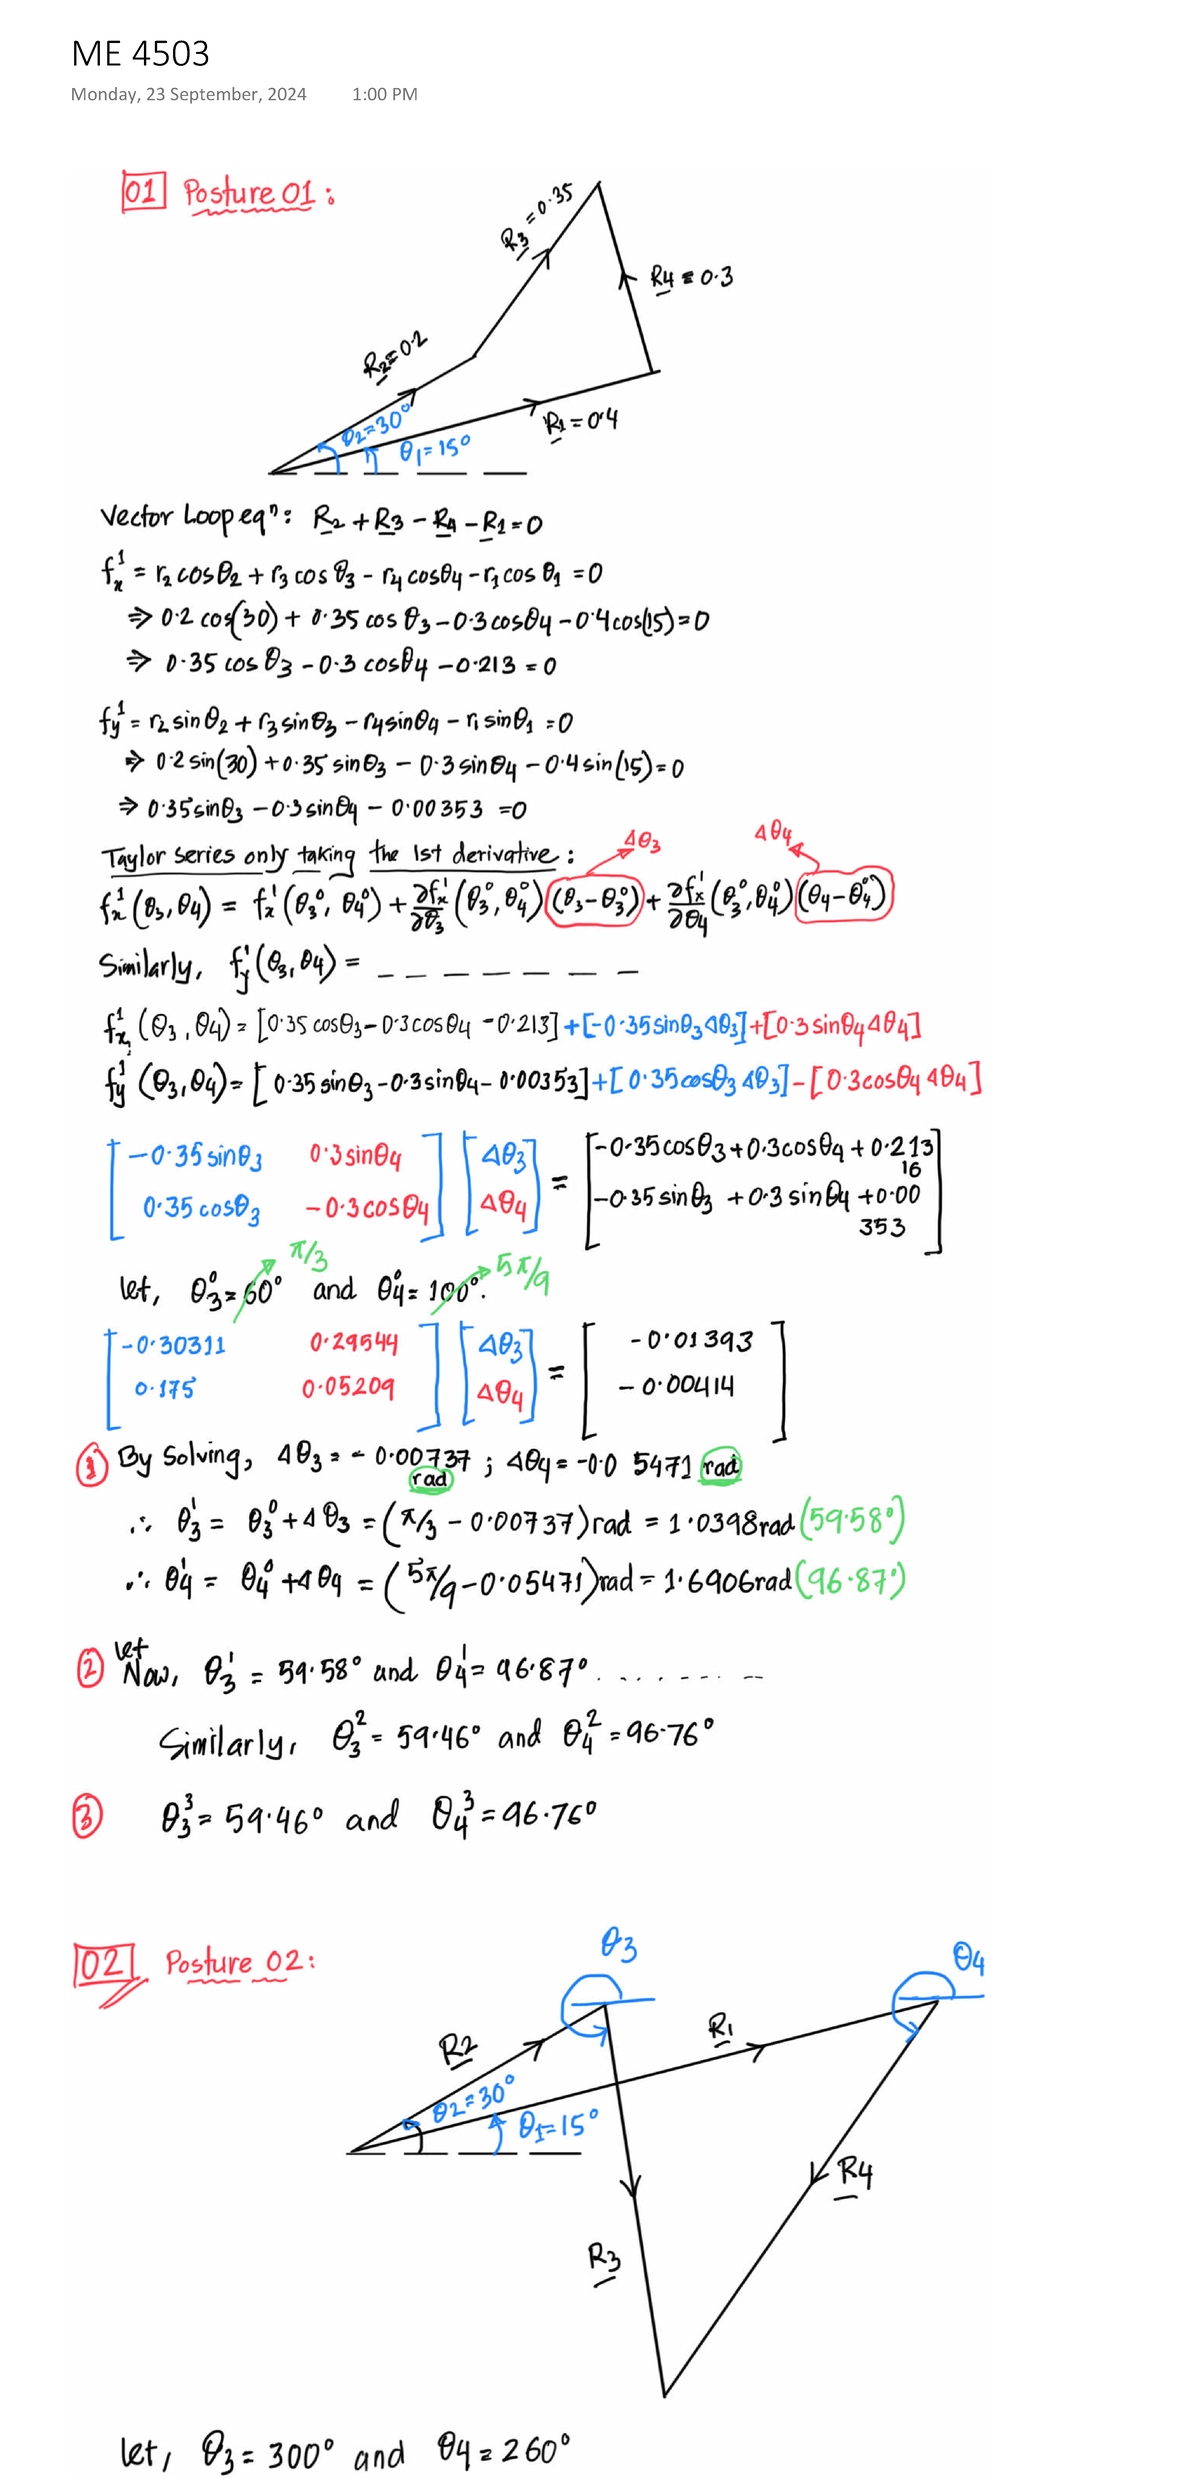 ME 4503
Monday, 23 September, 2024 1:00 PM
01 Posture 01:
R3 = 0.35
R4 = 0.3
R2=0.2
θ2=30°
R1=0.4
θ1=15°
Vector Loop eqⁿ: R2 + R3 - R4 - R1=0
fx¹ = r2 cosθ2 + r3 cos θ3 - r4 cosθ4 - r1 cos θ1 =0
⇒ 0.2 cos(30) + 0.35 cos θ3 - 0.3 cosθ4 - 0.4 cos(15)=0
⇒ 0.35 cos θ3 - 0.3 cosθ4 - 0.213 = 0
fy¹ = r2 sin θ2 + r3 sin θ3 - r4 sin θ4 - r1 sin θ1 =0
⇒ 0.2 sin(30) +0.35 sin θ3 - 0.3 sin θ4 - 0.4 sin(15)=0
⇒ 0.35 sin θ3 - 0.3 sin θ4 - 0.00353 =0
Δθ3 Δθ4
Taylor series only taking the 1st derivative:
fx¹ (θ3, θ4) = fx¹ (θ3⁰, θ4⁰) + ∂fx¹/∂θ3 (θ3⁰, θ4⁰) (θ3-θ3⁰) + ∂fx¹/∂θ4 (θ3⁰, θ4⁰) (θ4-θ4⁰)
Similarly, fy¹(θ3, θ4) = _ _ _ _ _ _ _
fx¹ (θ3, θ4) = [0.35 cosθ3 - 0.3 cosθ4 - 0.213] + [-0.35 sinθ3 Δθ3] + [0.3 sinθ4 Δθ4]
fy¹ (θ3, θ4) = [0.35 sinθ3 - 0.3 sinθ4 - 0.00353] + [0.35 cosθ3 Δθ3] - [0.3 cosθ4 Δθ4]
[-0.35 sinθ3 0.3 sinθ4] [Δθ3] = [-0.35 cosθ3 + 0.3 cosθ4 + 0.213
16
0.35 cosθ3 -0.3 cosθ4 Δθ4 -0.35 sinθ3 + 0.3 sinθ4 + 0.00
353
π/3 5π/9
let, θ3⁰ = 60° and θ4⁰ = 100°.
[-0.30311 0.29544] [Δθ3] = [-0.01393]
0.175 0.05209 Δθ4 -0.00414
① By Solving, Δθ3 = -0.00737 rad ; Δθ4 = -0.05471 rad
∴ θ3¹ = θ3⁰ + Δθ3 = (π/3 - 0.00737) rad = 1.0398 rad (59.58°)
∴ θ4¹ = θ4⁰ + Δθ4 = (5π/9 - 0.05471) rad = 1.6906 rad (96.87°)
② let
Now, θ3¹ = 59.58° and θ4¹ = 96.87° . . . . . . . . .
Similarly, θ3² = 59.46° and θ4² = 96.76°
③ θ3³ = 59.46° and θ4³ = 96.76°
02 Posture 02:
θ3
θ4
R2
R1
θ2=30°
θ1=15°
R4
R3
let, θ3 = 300° and θ4 = 260°